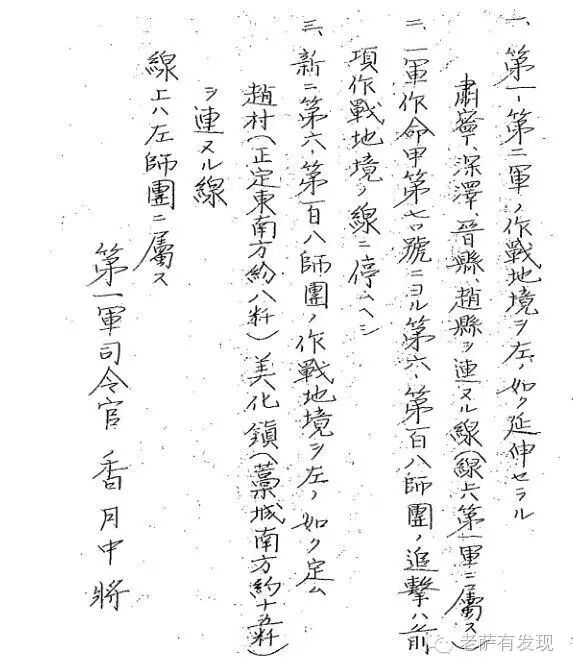 一、第一、第二軍ノ作戰地境ヲ左ノ如ク延伸セラル
肅寧、深澤、晉縣、趙縣ヲ連ヌル線(線上ハ第一軍ニ屬ス)
二、一軍作命甲第七〇號ニヨル第六、第百八師團ノ追擊ハ前
項作戰地境ノ線ニ停ムヘシ
三、新ニ第六、第百八師團ノ作戰地境ヲ左ノ如ク定ム
趙村(正定東南方約八粁)美化鎭(藁城南方約十五粁)
ヲ連ヌル線
線上ハ左師團ニ屬ス
第一軍司令官 香月中將
老萨有发现